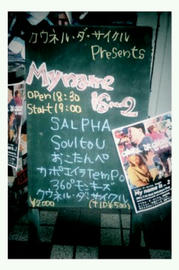 クウネル・ダ・サイクル
Presents
My name
is...2
Open 18:30
Start 19:00
SALPHA
SoultoU
おこたんぺ
カポエイラ TemPo
360°モンキーズ
クウネル・ダ・サイクル
¥2000 (+1D¥500)
My name is...2